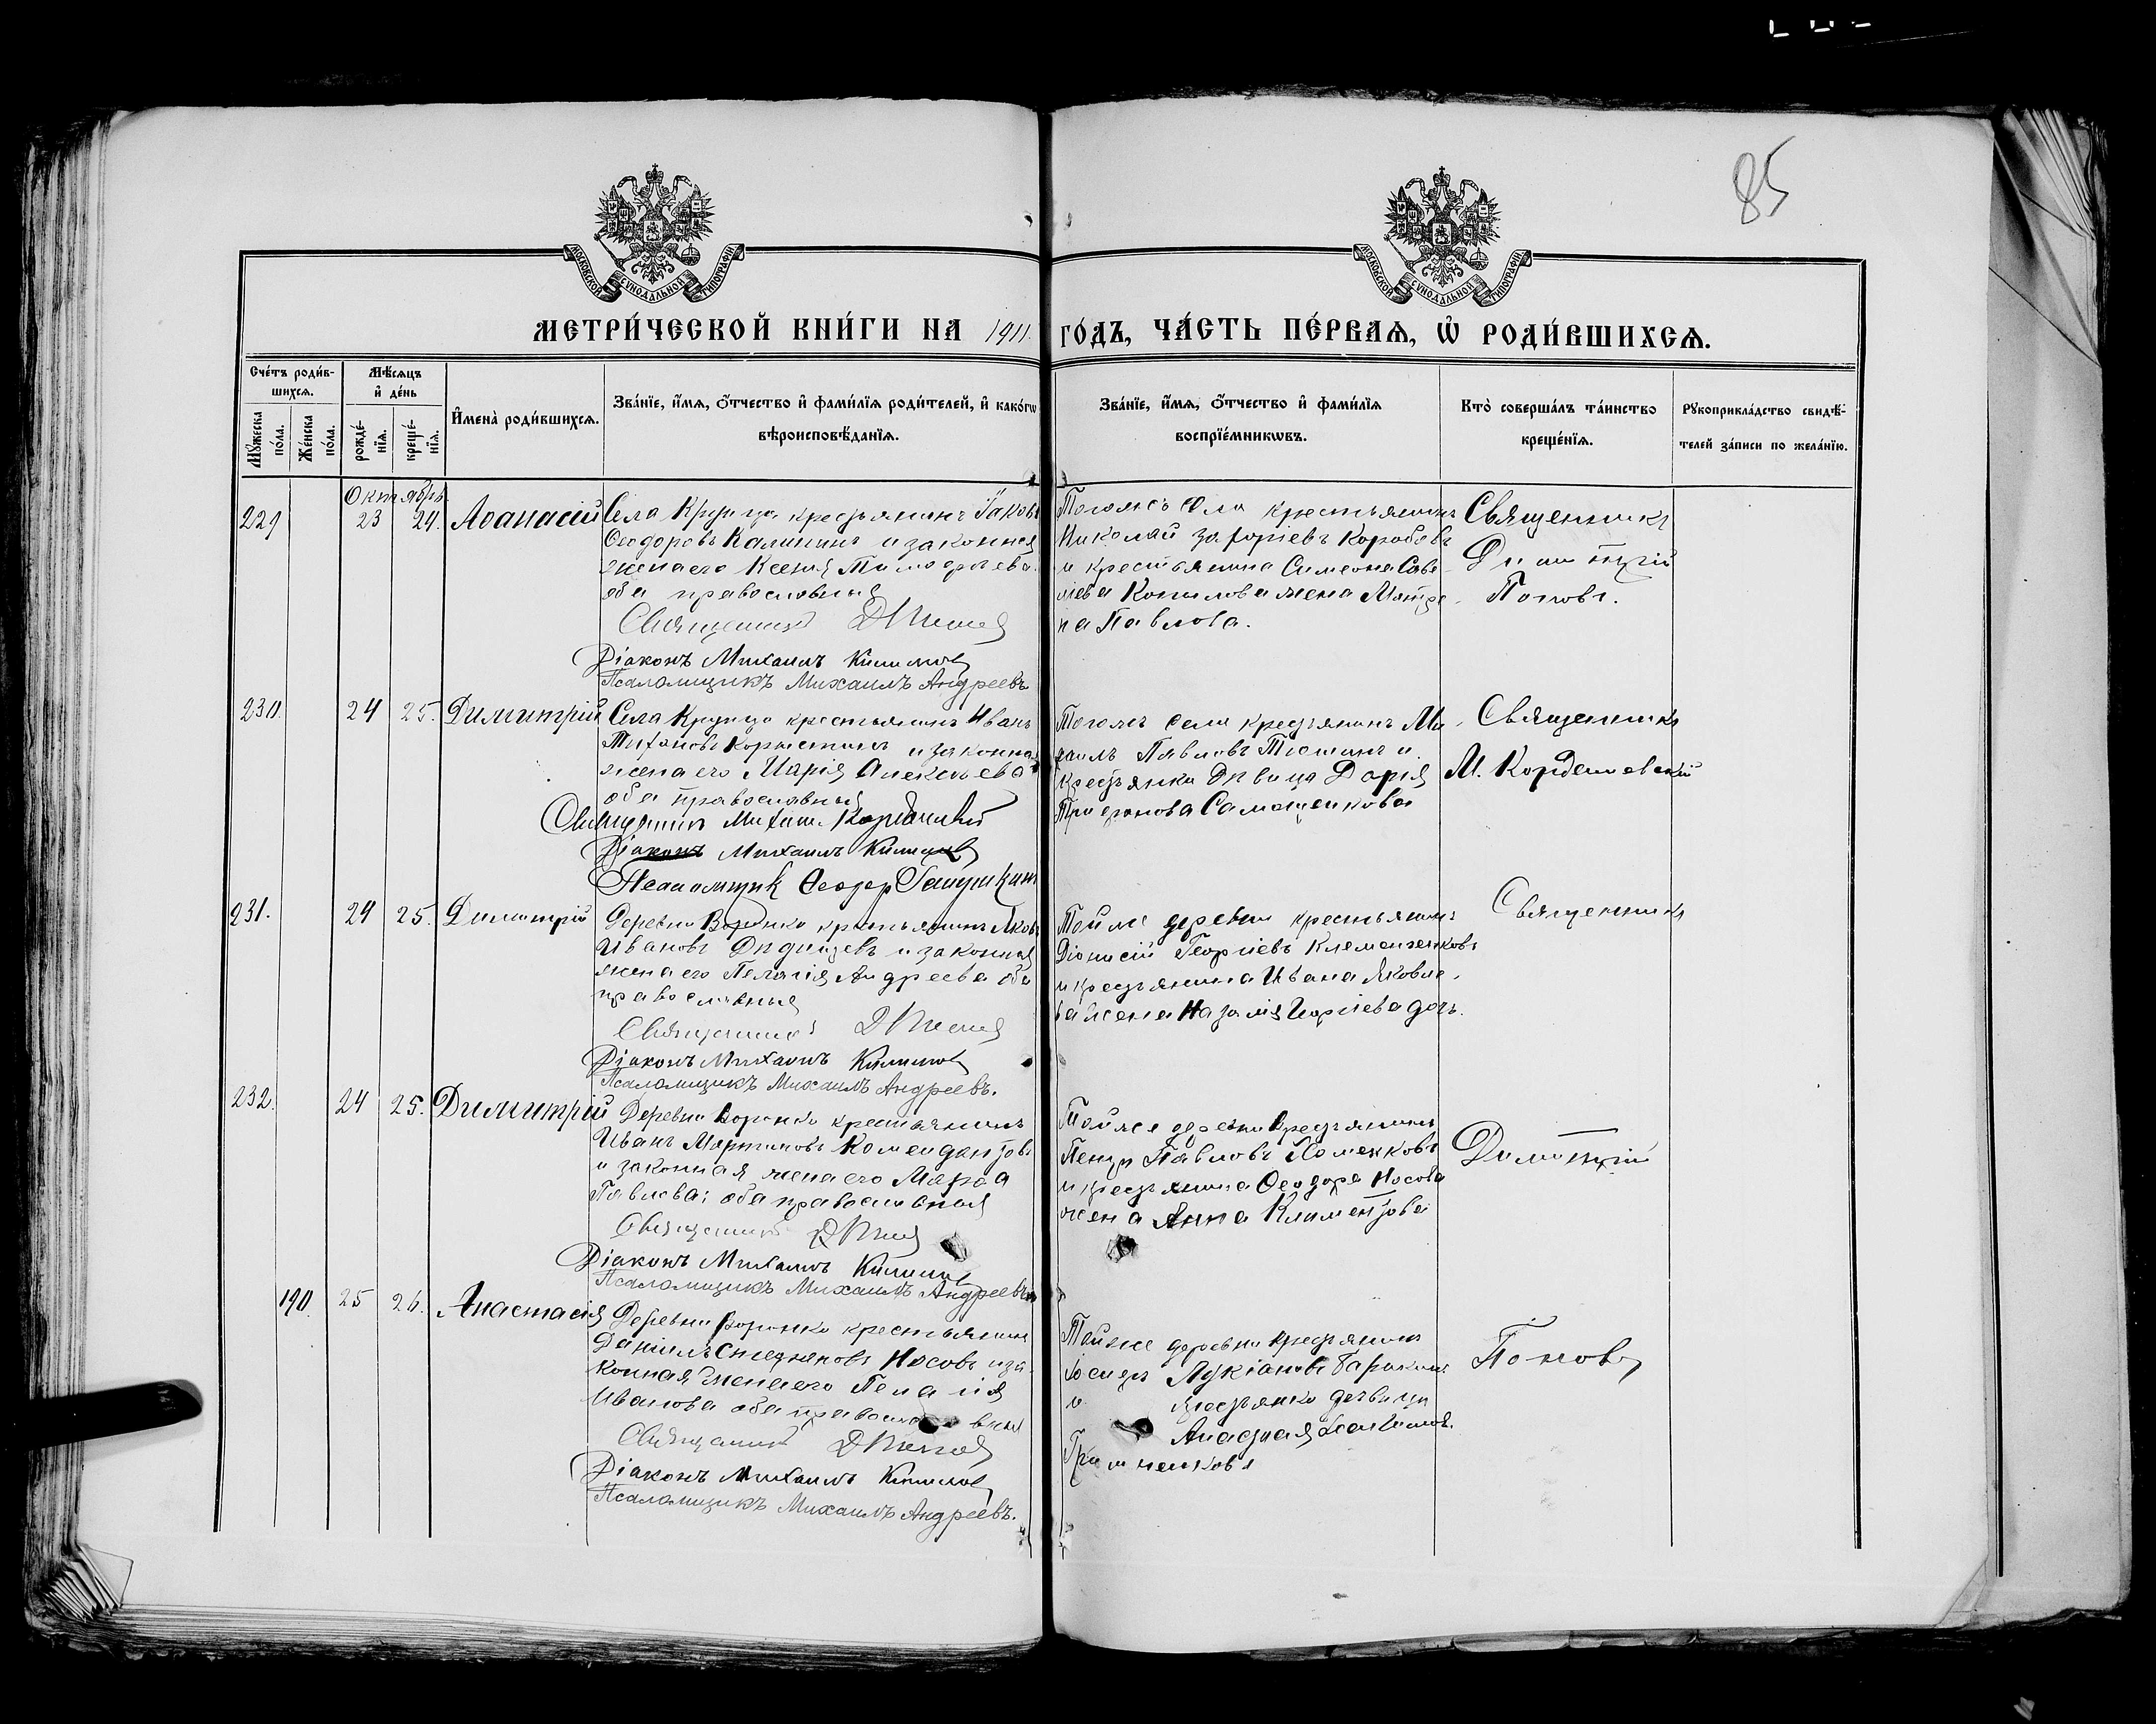 85
МОСКОВСКОЙ СѴНОДАЛЬНОЙ ТИПОГРАФІИ
МОСКОВСКОЙ СѴНОДАЛЬНОЙ ТИПОГРАФІИ
МЕТРИ́ЧЕСКОЙ КНИ́ГИ НА 1911 ГО́ДЪ, ЧА́СТЬ ПЕ́РВАѦ, Ѡ҆ РОДИ́ВШИХСѦ.
Сче́тъ роди́в-
шихсѧ.
Мѣ́сѧцъ
и҆ де́нь
Мꙋ́жеска по́ла.
Же́нска по́ла.
рожде́-нїѧ.
креще́-нїѧ.
И҆мена̀ роди́вшихсѧ.
Зва́нїе, и҆́мѧ, ѻ҆́тчество и҆ фами́лїѧ роди́телей, и҆ како́гѡ
вѣроисповѣ́данїѧ.
Зва́нїе, и҆́мѧ, ѻ҆́тчество и҆ фами́лїѧ
воспрїе́мникѡвъ.
Кто̀ соверша́лъ та́инство
креще́нїѧ.
Рꙋкоприкла́дство свидѣ́-
телей за́писи по жела́нїю.
Октябрь
229 23 24. Аѳанасій
Села Крупца крестьянинъ Іаковъ
Ѳеодоровъ Калининъ и законная
жена его Ксенія Тимоѳеева
оба православныя
Священникъ Д Попов
Діаконъ Михаилъ Климов
Псаломщикъ Михаилъ Андреевъ
Тогожъ села крестьянинъ
Николай Коробовъ
и крестьянина Симеона Саве-
льева Копылова жена Матре-
на Павлова.
Священникъ
Димитрій
Поповъ.
230. 24 25. Димитрій
Села Крупца крестьянинъ Иванъ
Тихоновъ и законная
жена его Марія Алексѣева
оба православныя
Священникъ Михаил
Діаконъ Михаилъ Климов
Псаломщик Ѳеодор
Тогожъ села крестьянинъ Ми-
хаилъ Павловъ и
крестьянка дѣвица Дарія
Самощенкова
Священникъ
М.
231. 24 25. Димитрій
Деревни Воронка крестьянинъ Яковъ
Ивановъ и законная
жена его Пелагія Андреева оба
православныя
Священникъ Д Попов
Діаконъ Михаилъ Климов
Псаломщикъ Михаилъ Андреевъ.
Тойже деревни крестьянинъ
Діонисій Георгіевъ Клеменченковъ
и крестьянина Ивана Яковле-
ва жена дочь.
Священникъ
232. 24 25. Димитрій
Деревни Воронка крестьянинъ
Иванъ Мартиновъ Комендантовъ
и законная жена его Марѳа
Павлова; оба православныя
Священникъ Д Попов
Діаконъ Михаилъ Климов
Псаломщикъ Михаилъ Андреевъ
Тойже деревни крестьянинъ
Петръ Павловъ
и крестьянина Ѳеодора Носова
жена Анна Климентова
Димитрій
190. 25 26. Анастасія
Деревни Воронка крестьянинъ
Даніилъ Стефановъ Носовъ и за-
конная жена его Пелагія
Иванова оба православныя
Священникъ Д Попов
Діаконъ Михаилъ Климов
Псаломщикъ Михаилъ Андреевъ.
Тойже деревни крестьянинъ
Іосифъ Лукіановъ
и крестьянка дѣвица
Поповъ